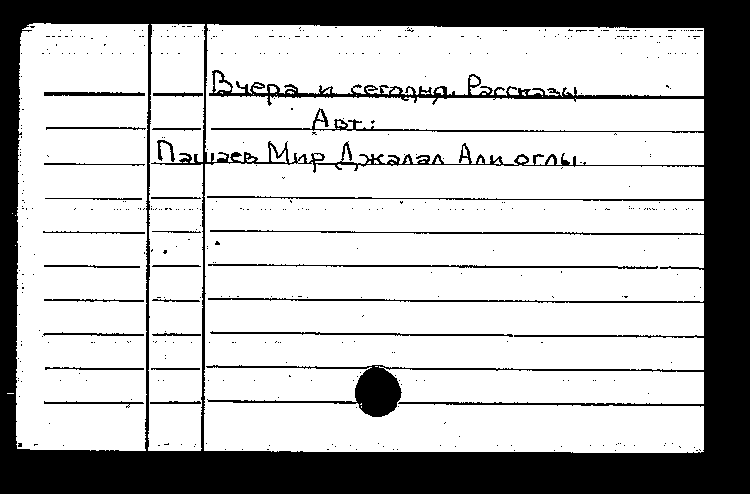 Вчера и сегодня. Рассказы.
Авт.:
Пашаев Мир Джалал Али оглы.